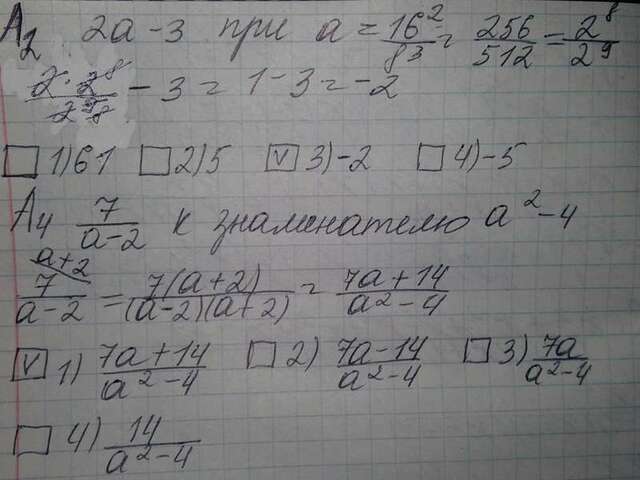 A2 2a-3 при a = 16²/8³ = 256/512 = 2⁸/2⁹
2·2⁸/2⁹ - 3 = 1-3 = -2
☐ 1) 61 ☐ 2) 5 ☑ 3) -2 ☐ 4) -5
A4 7/(a-2) к знаменателю a²-4
a+2
7/(a-2) = 7(a+2)/((a-2)(a+2)) = (7a+14)/(a²-4)
☑ 1) (7a+14)/(a²-4) ☐ 2) (7a-14)/(a²-4) ☐ 3) 7a/(a²-4)
☐ 4) 14/(a²-4)